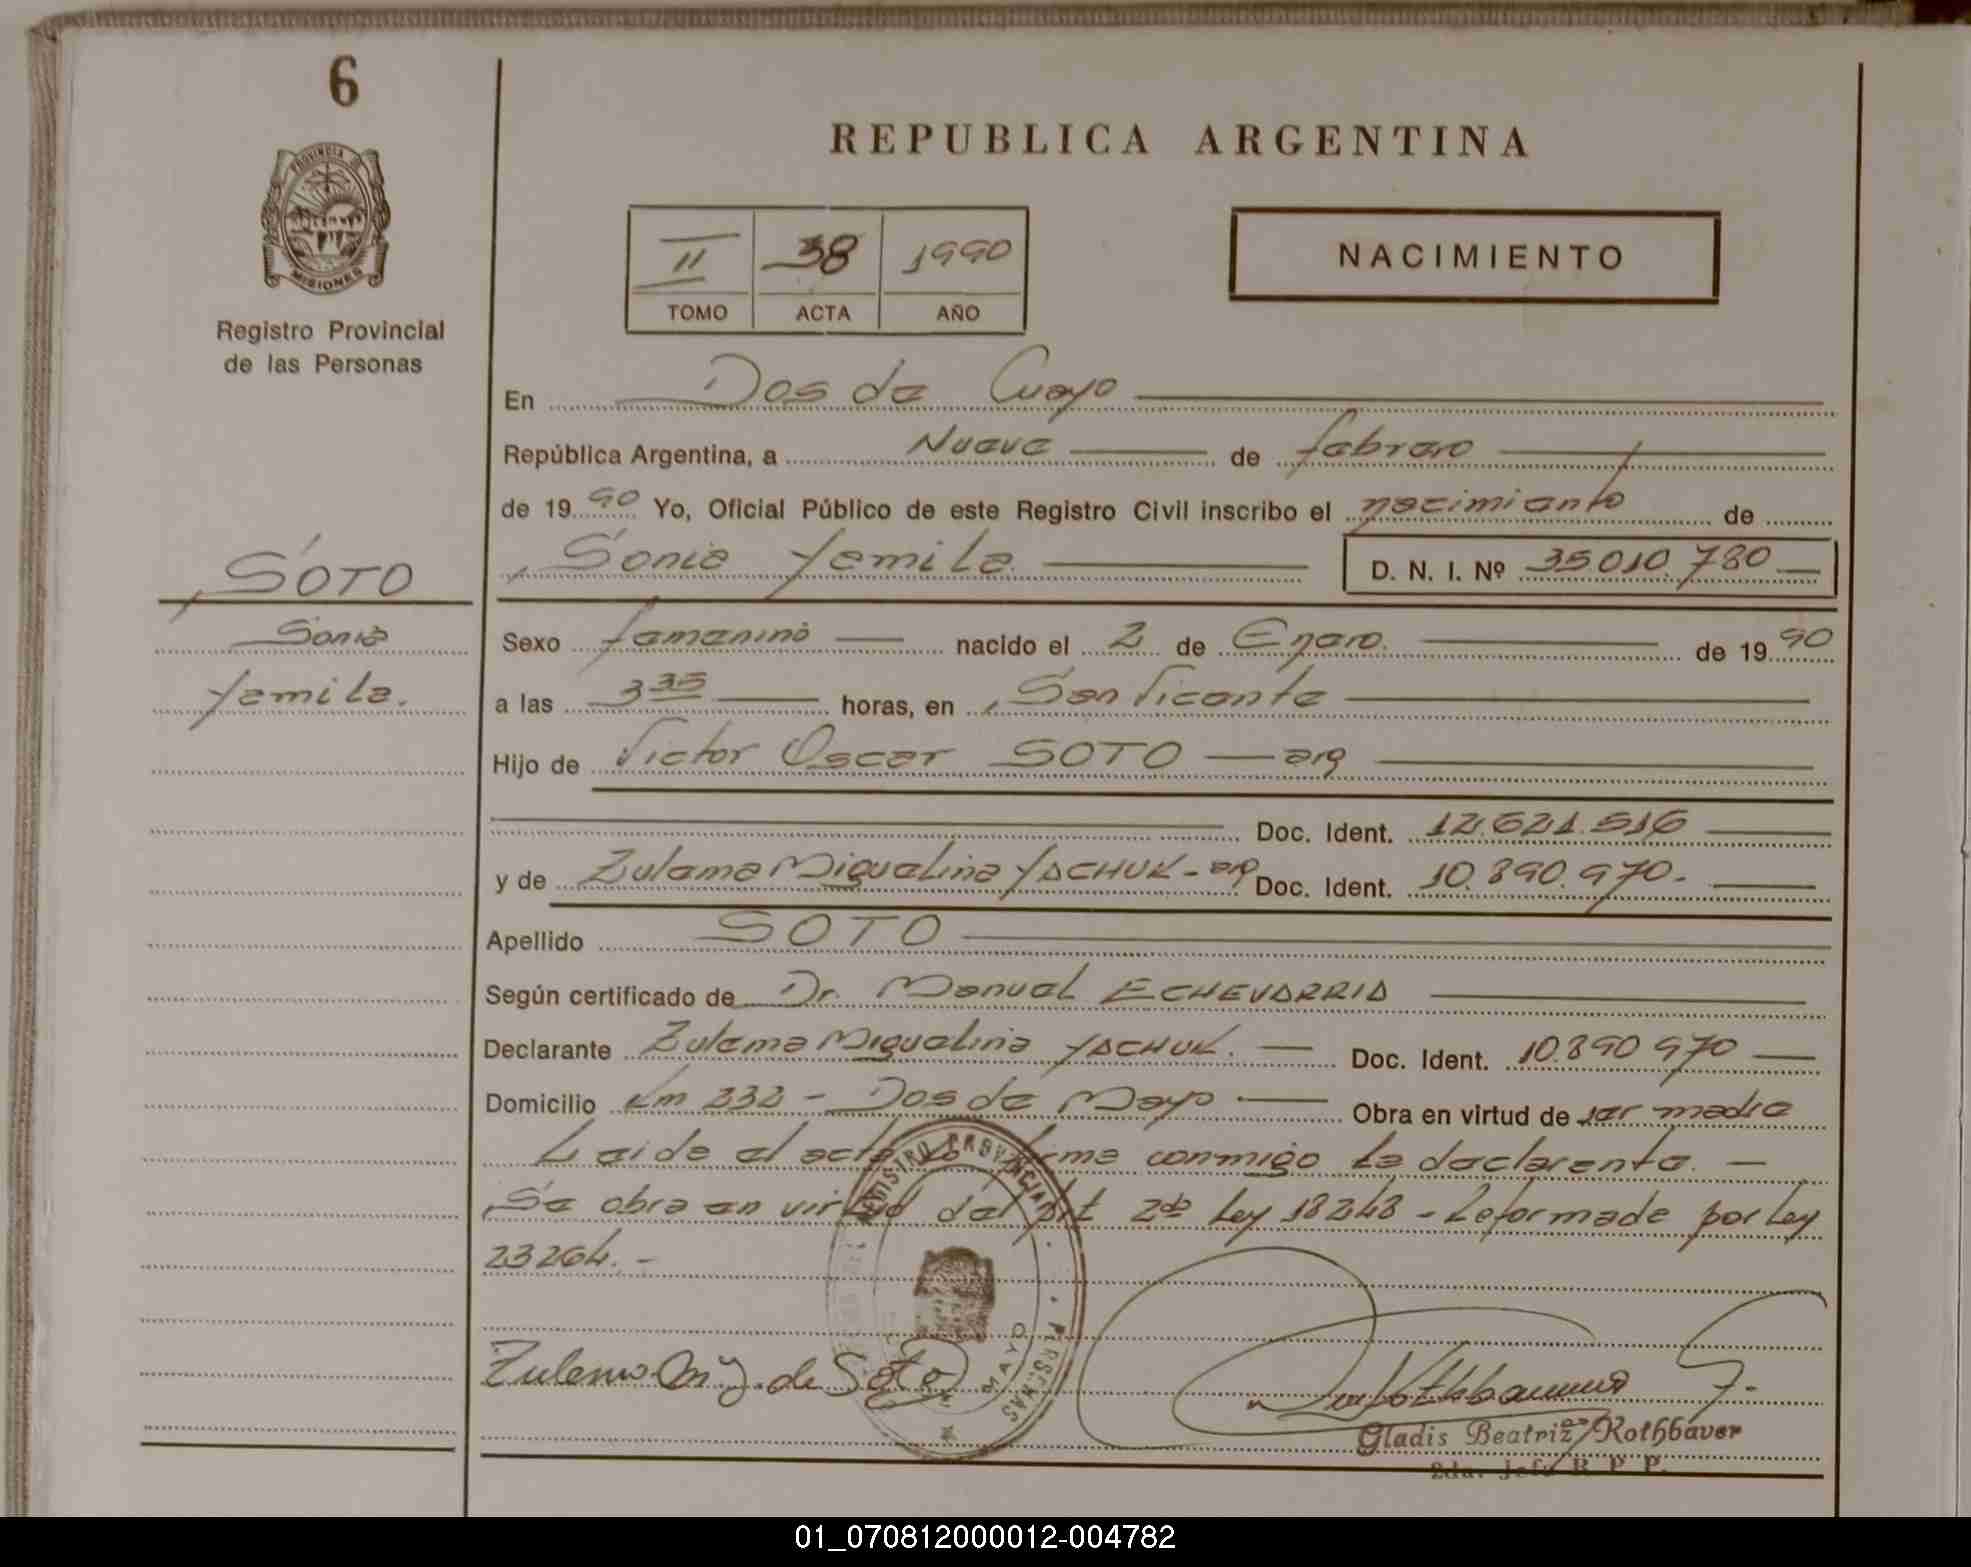 6
PROVINCIA DE
MISIONES
Registro Provincial
de las Personas
REPUBLICA ARGENTINA
II 38 1990
TOMO ACTA AÑO
NACIMIENTO
En Dos de Mayo
República Argentina, a Nueve de febrero
de 1990 Yo, Oficial Público de este Registro Civil inscribo el nacimiento de
Sonia Yamila D. N. I. Nº 35010.780
SOTO
Sonia
Yamila.
Sexo femenino nacido el 2 de Enero. de 1990
a las 3 35 horas, en San Vicente
Hijo de Victor Oscar SOTO — arg
Doc. Ident. 12.621.516
y de Zulema Miguelina YACHUK - arg Doc. Ident. 10.890.970.
Apellido SOTO
Según certificado de Dr. Manuel ECHEVARRIA
Declarante Zulema Miguelina YACHUK. Doc. Ident. 10.890 970
Domicilio Km 232 - Dos de Mayo Obra en virtud de ser madre
Leida el acta la firma conmigo la declarante. —
Se obra en virtud del Art 2do Ley 18248 - Reformade por Ley
23264. -
REGISTRO PROVINCIAL PERSONAS
MAYO
Zulema M Y. de Soto
Gladis Beatriz Rothbaver
2da. Jefe R P P.
01_070812000012-004782